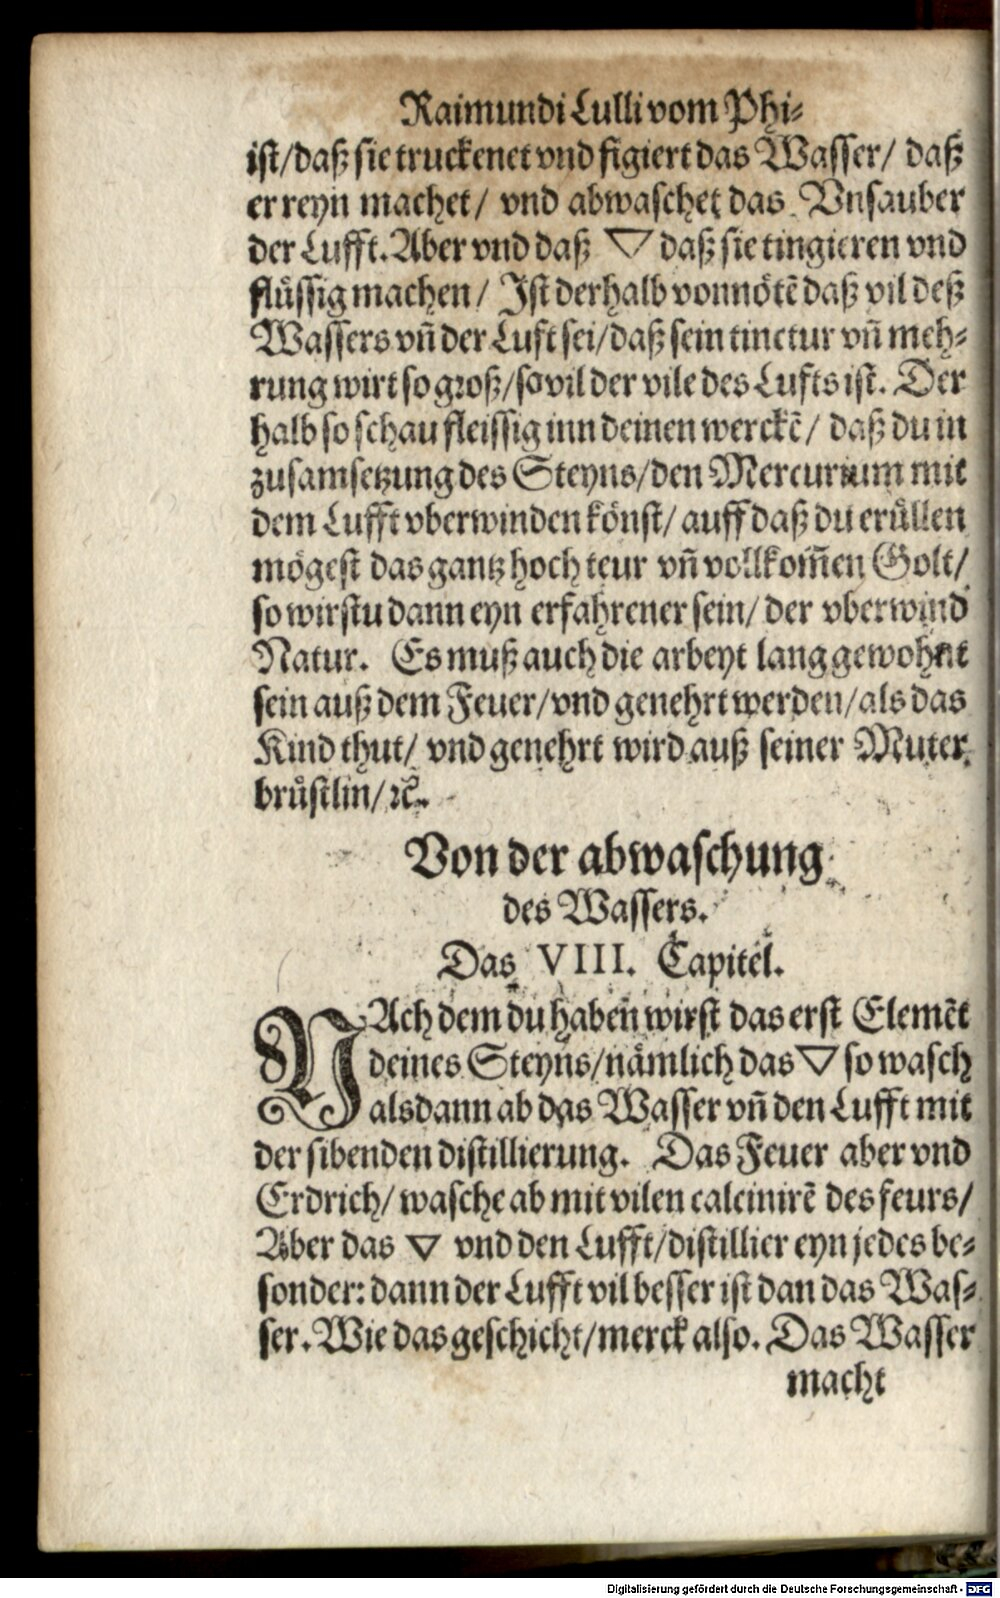 Raimundi Lulli vom Phi⸗
ist/daß sie truckenet vnd figiert das Wasser/ daß
er reyn machet/ vnd abwaschet das Vnsauber
der Lufft. Aber vnd daß ▽ daß sie tingieren vnd
flüssig machen/ Ist derhalb vonnötē daß vil deß
Wassers vñ der Luft sei/daß sein tinctur vñ meh⸗
rung wirt so groß/so vil der vile des Lufts ist. Der
halb so schau fleissig inn deinen werckē/ daß du in
zusamsetzung des Steyns/den Mercurium mit
dem Lufft vberwinden könst/ auff daß du erüllen
mögest das gantz hoch teur vñ vollkom̃en Golt/
so wirstu dann eyn erfahrener sein/ der vberwind
Natur. Es muß auch die arbeyt lang gewohnt
sein auß dem Feuer/vnd genehrt werden/als das
Kind thut/ vnd genehrt wird auß seiner Muter
brüstlin/ ꝛc.
Von der abwaschung
des Wassers.
Das VIII. Capitel.
NAch dem du haben wirst das erst Elemēt
deines Steyns/nämlich das ▽ so wasch
alsdann ab das Wasser vñ den Lufft mit
der sibenden distillierung. Das Feuer aber vnd
Erdrich/ wasche ab mit vilen calcinirē des feurs/
Aber das ▽ vnd den Lufft/distillier eyn jedes be⸗
sonder: dann der Lufft vil besser ist dan das Was⸗
ser. Wie das geschicht/merck also. Das Wasser
macht
Digitalisierung gefördert durch die Deutsche Forschungsgemeinschaft - DFG